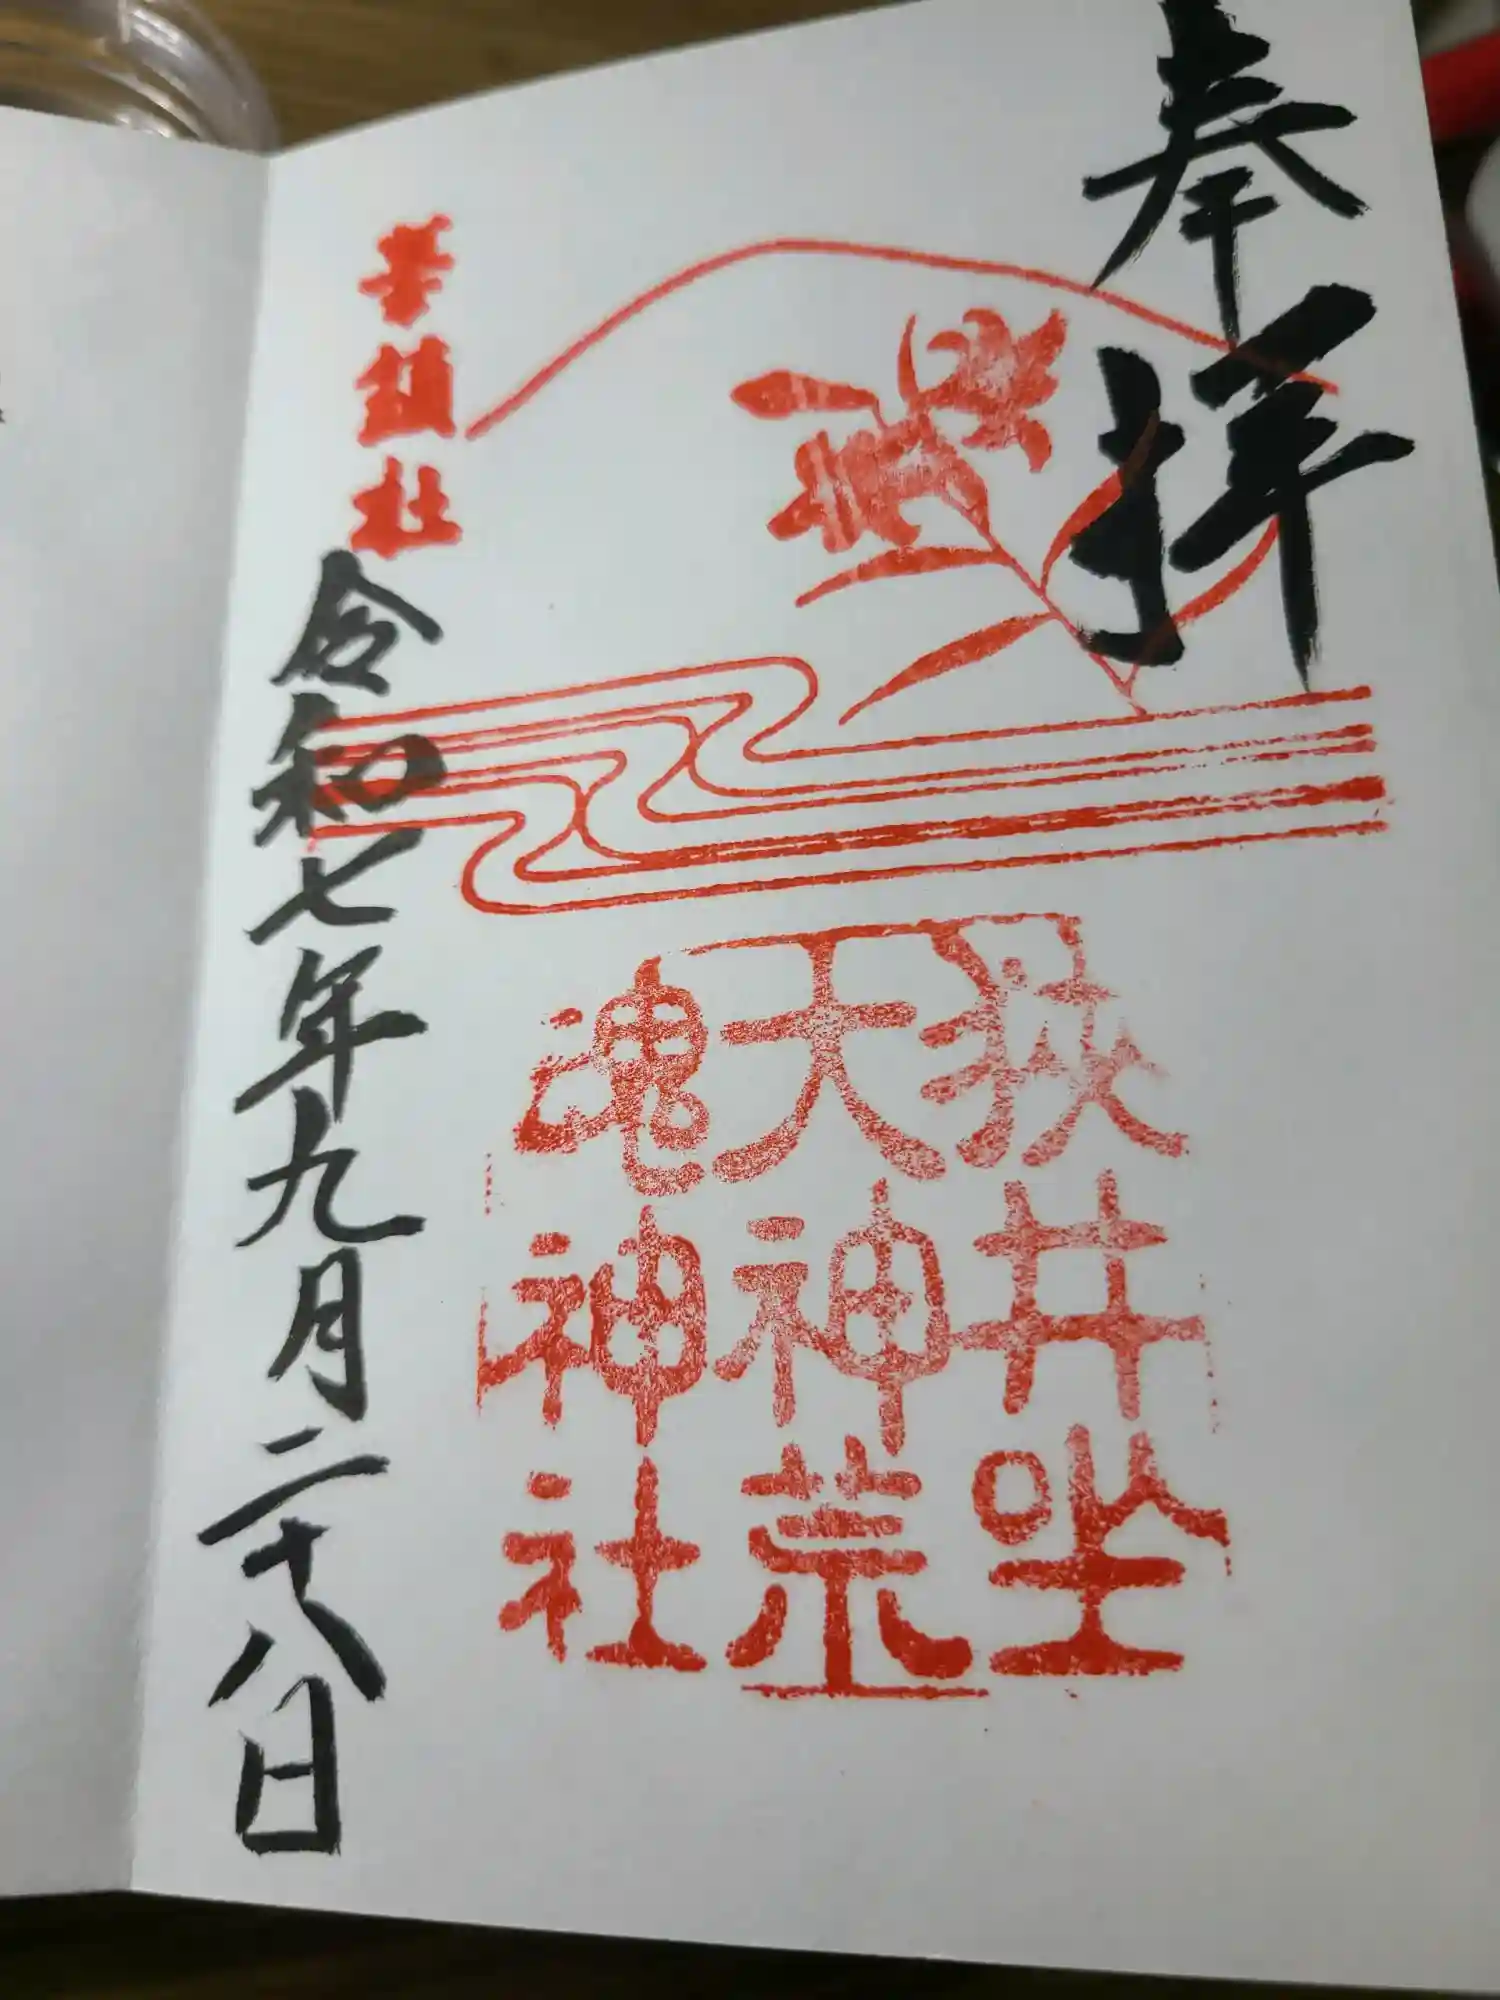 奉拝
狹井坐
大神荒
魂神社
華鎮社
令和七年九月二十八日